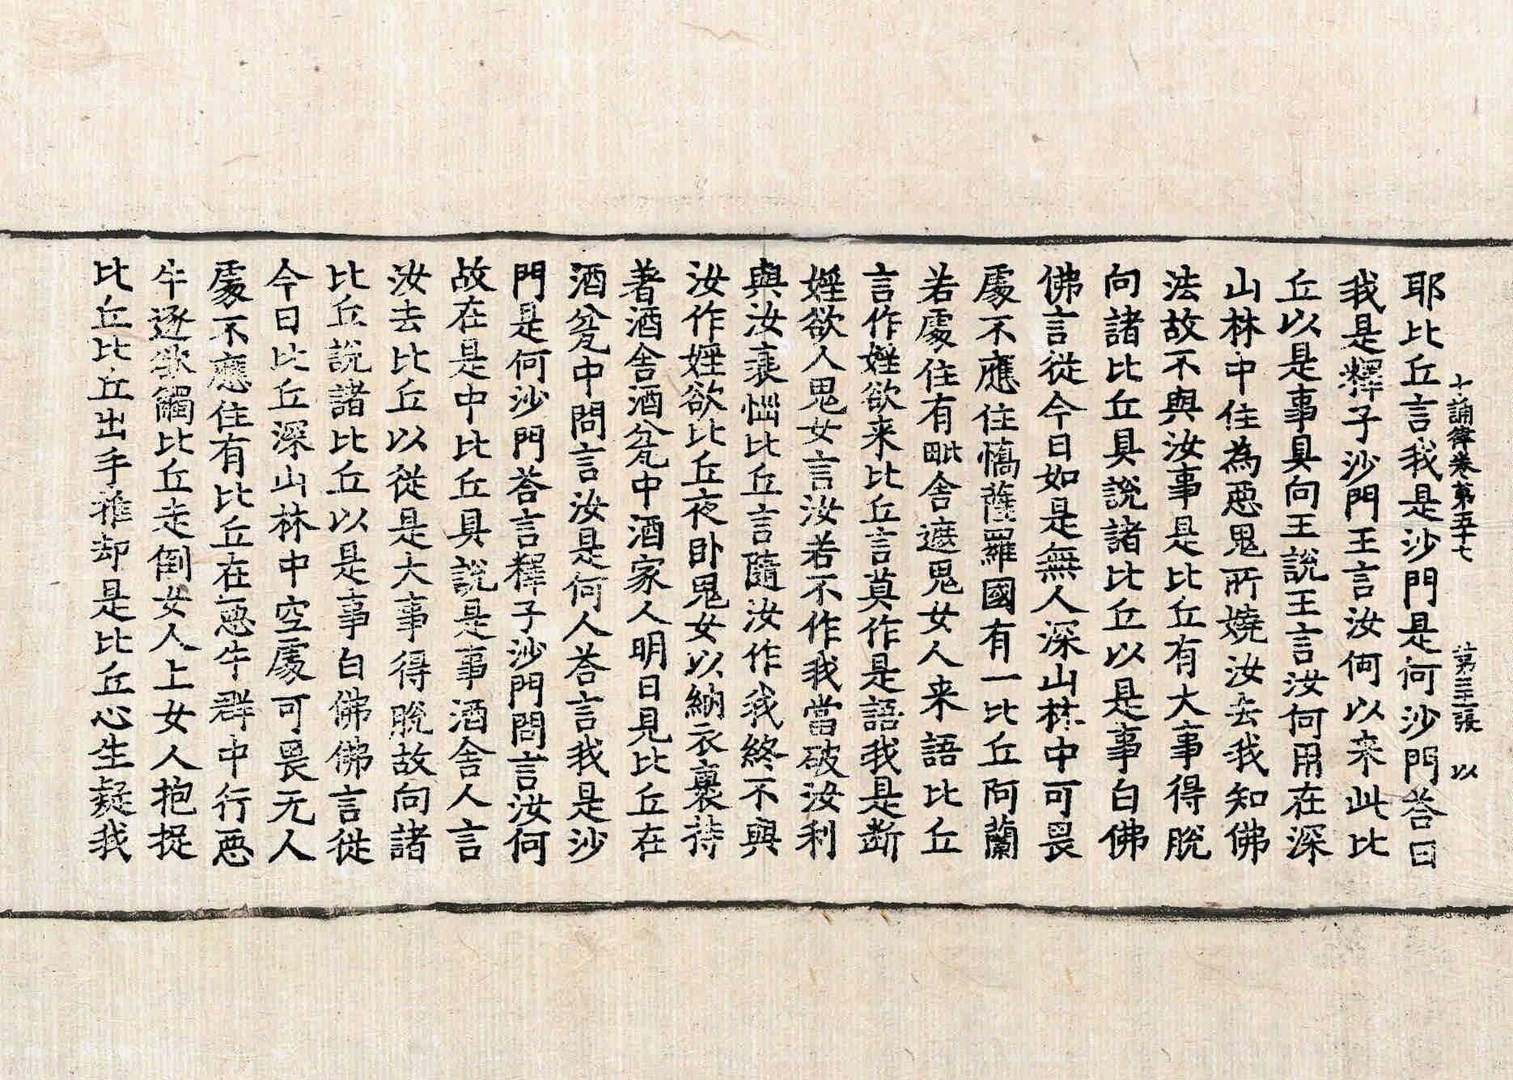 十誦律卷第五十七 第三張 以
耶比丘言我是沙門是何沙門荅曰
我是釋子沙門王言汝何以来此比
丘以是事具向王說王言汝何用在深
山林中住為惡鬼所嬈汝去我知佛
法故不與汝事是比丘有大事得脫
向諸比丘具說諸比丘以是事白佛
佛言從今日如是無人深山林中可畏
處不應住憍薩羅國有一比丘阿蘭
若處住有毗舍遮鬼女人来語比丘
言作婬欲来比丘言莫作是語我是断
婬欲人鬼女言汝若不作我當破汝利
與汝衰惱比丘言隨汝作我終不與
汝作婬欲比丘夜卧鬼女以納衣裹持
著酒舍酒瓮中酒家人明日見比丘在
酒瓮中問言汝是何人荅言我是沙
門是何沙門荅言釋子沙門問言汝何
故在是中比丘具說是事酒舍人言
汝去比丘以從是大事得脫故向諸
比丘說諸比丘以是事白佛佛言從
今日比丘深山林中空處可畏无人
處不應住有比丘在惡牛群中行惡
牛逐欲觸比丘走倒女人上女人抱捉
比丘比丘出手推却是比丘心生疑我